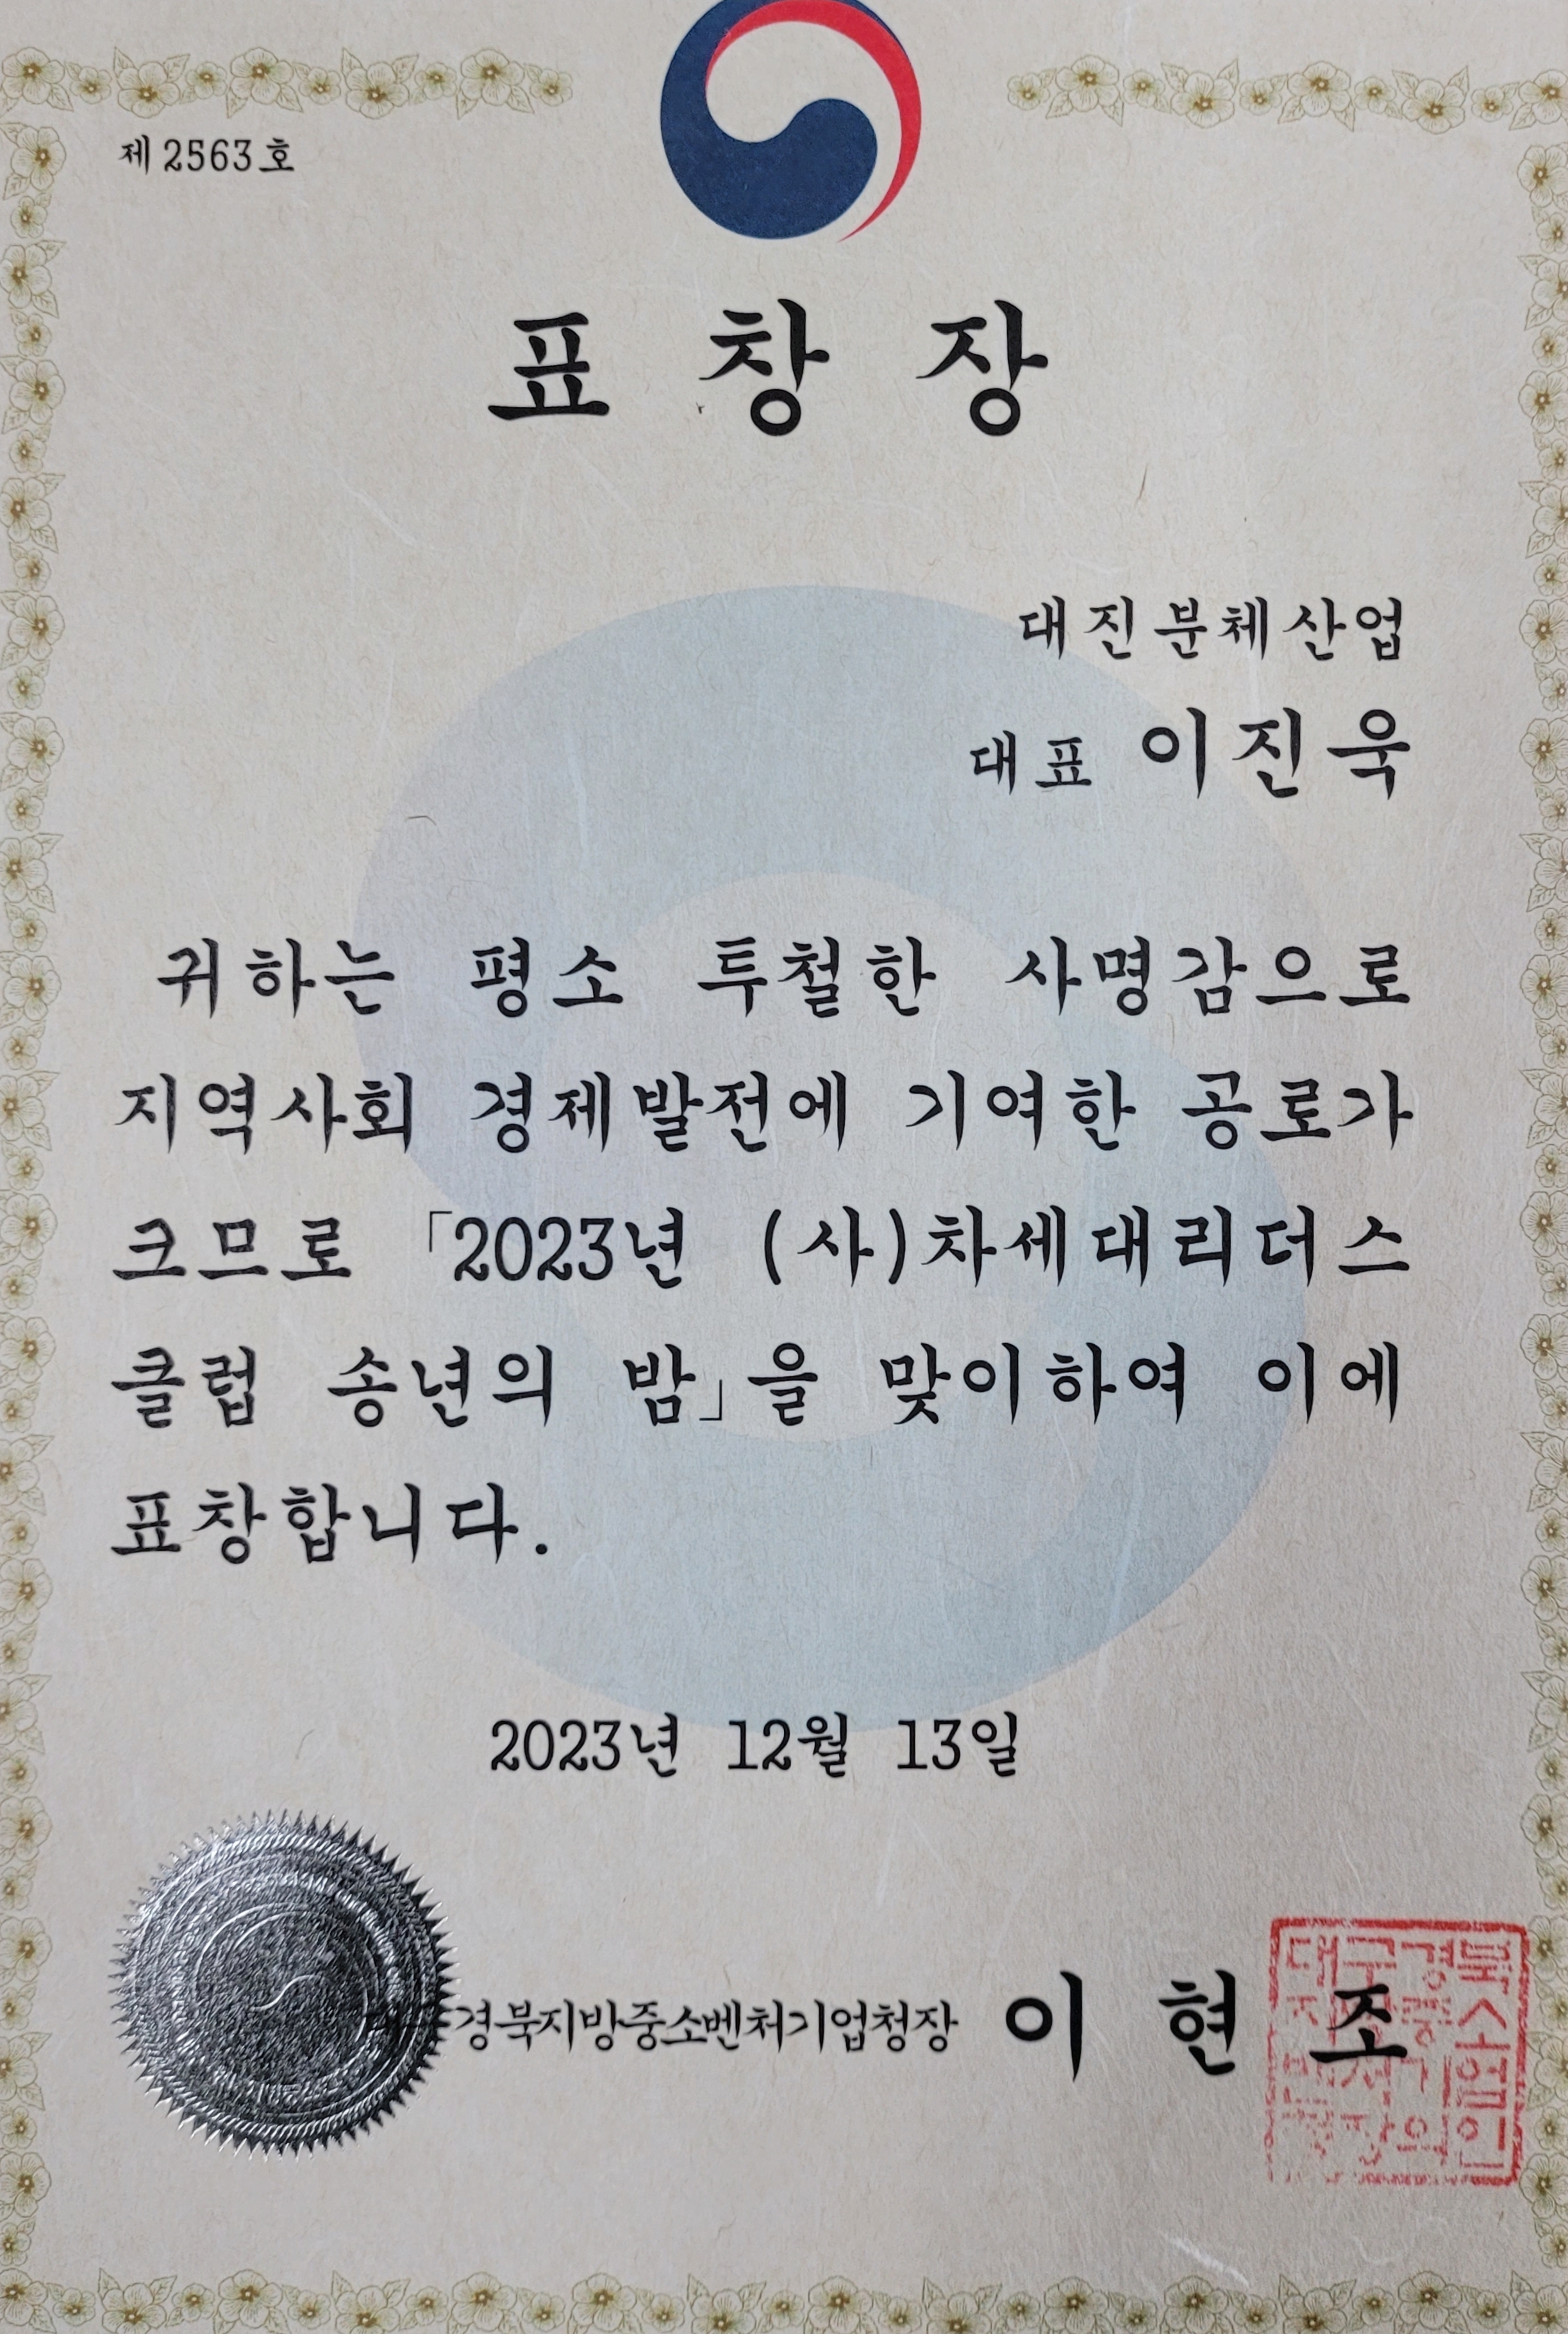 제 2563 호
표 창 장
대진분체산업
대표 이진욱
귀하는 평소 투철한 사명감으로
지역사회 경제발전에 기여한 공로가
크므로 「2023년 (사)차세대리더스
클럽 송년의 밤」을 맞이하여 이에
표창합니다.
2023년 12월 13일
경북지방중소벤처기업청장 이 현 조
대구경북